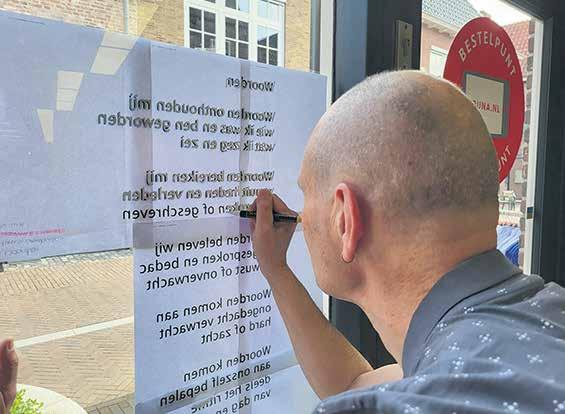 Woorden
Woorden onthouden mij
wie ik was en ben geworden
wat ik zeg en zei
Woorden bereiken mij
heden en verleden
roken of geschreven
orden beleven wij
gesproken en bedac
wust of onverwacht
Woorden komen aan
ongedacht verwacht
hard of zacht
Woorden komen
aan onszelf bepalen
deels het ritme
van dag en
BESTELPUNT
UNA.NL